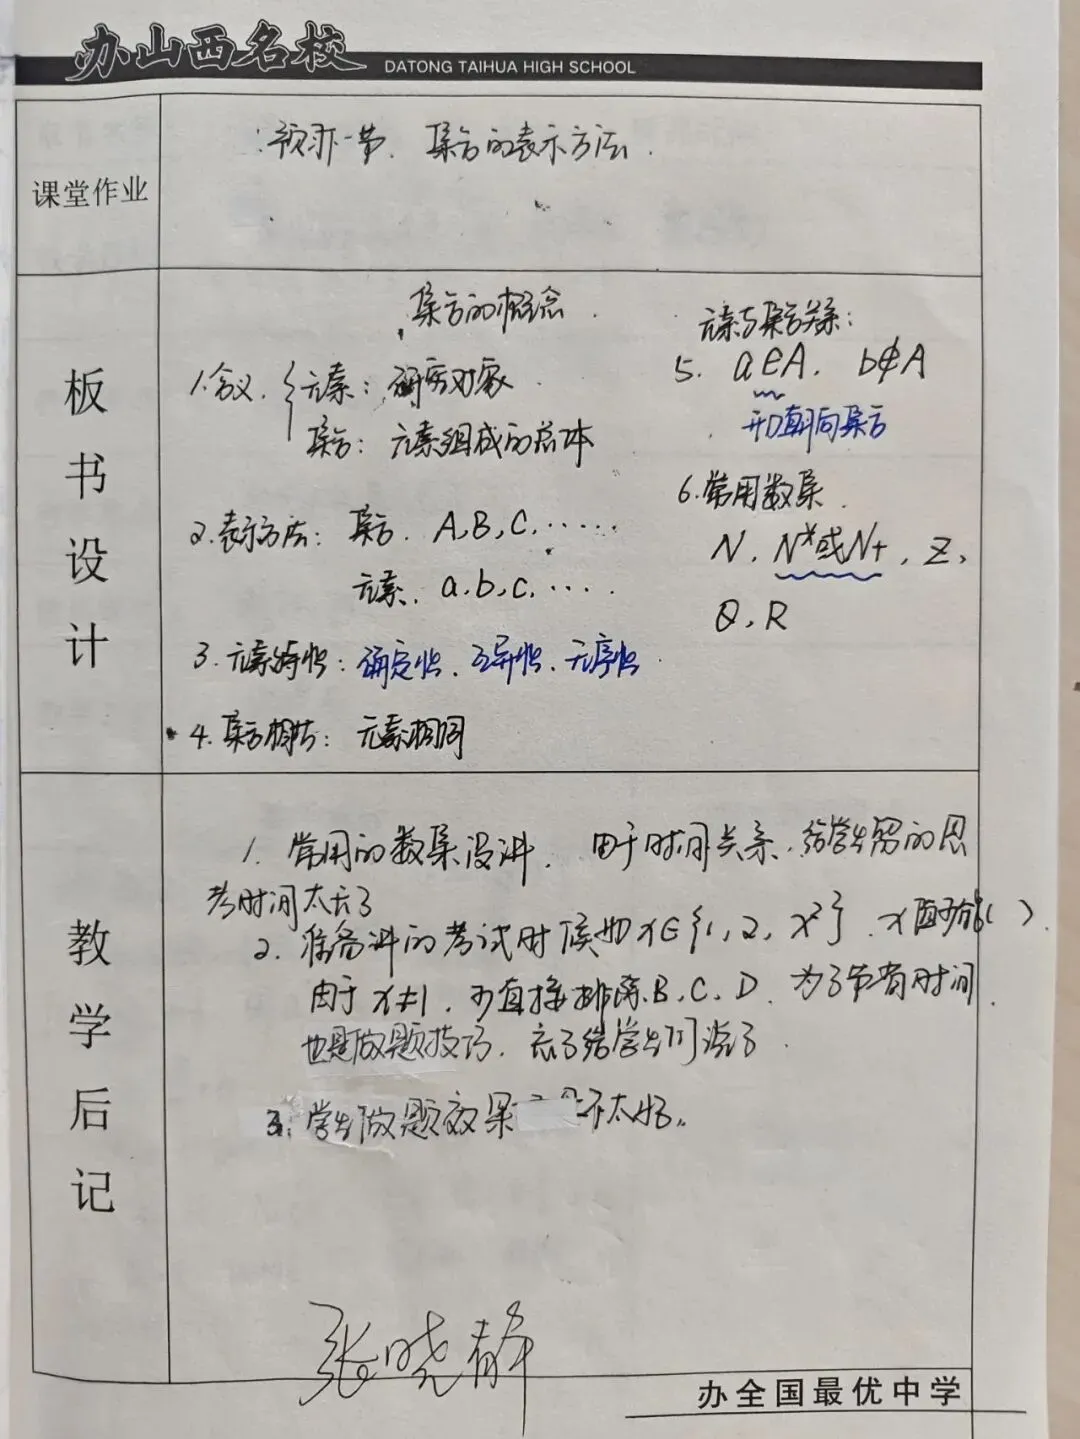 办山西名校 DATONG TAIHUA HIGH SCHOOL
课堂作业
预习下一节、集合的表示方法.
板书设计
集合的概念
1.含义. 元素：研究对象
集合：元素组成的总体
2.表示方法：集合. A,B,C,……
元素. a,b,c,……
3.元素特性：确定性、互异性、无序性
4.集合相等：元素相同
元素与集合关系：
5. a∈A. b∉A
开口朝向集合
6.常用数集.
N, N*或N+, Z,
Q, R
教学后记
1. 常用的数集没讲. 由于时间关系.给学生留的思
考时间太长了
2. 准备讲的考试时候如x∈{1, 2, x²}. x 可能( ).
由于x≠1, 可直接排除B、C、D. 为了节省时间
也是做题技巧. 忘了给学生们说了.
3. 学生做题效果 不太好.
张晓静
办全国最优中学